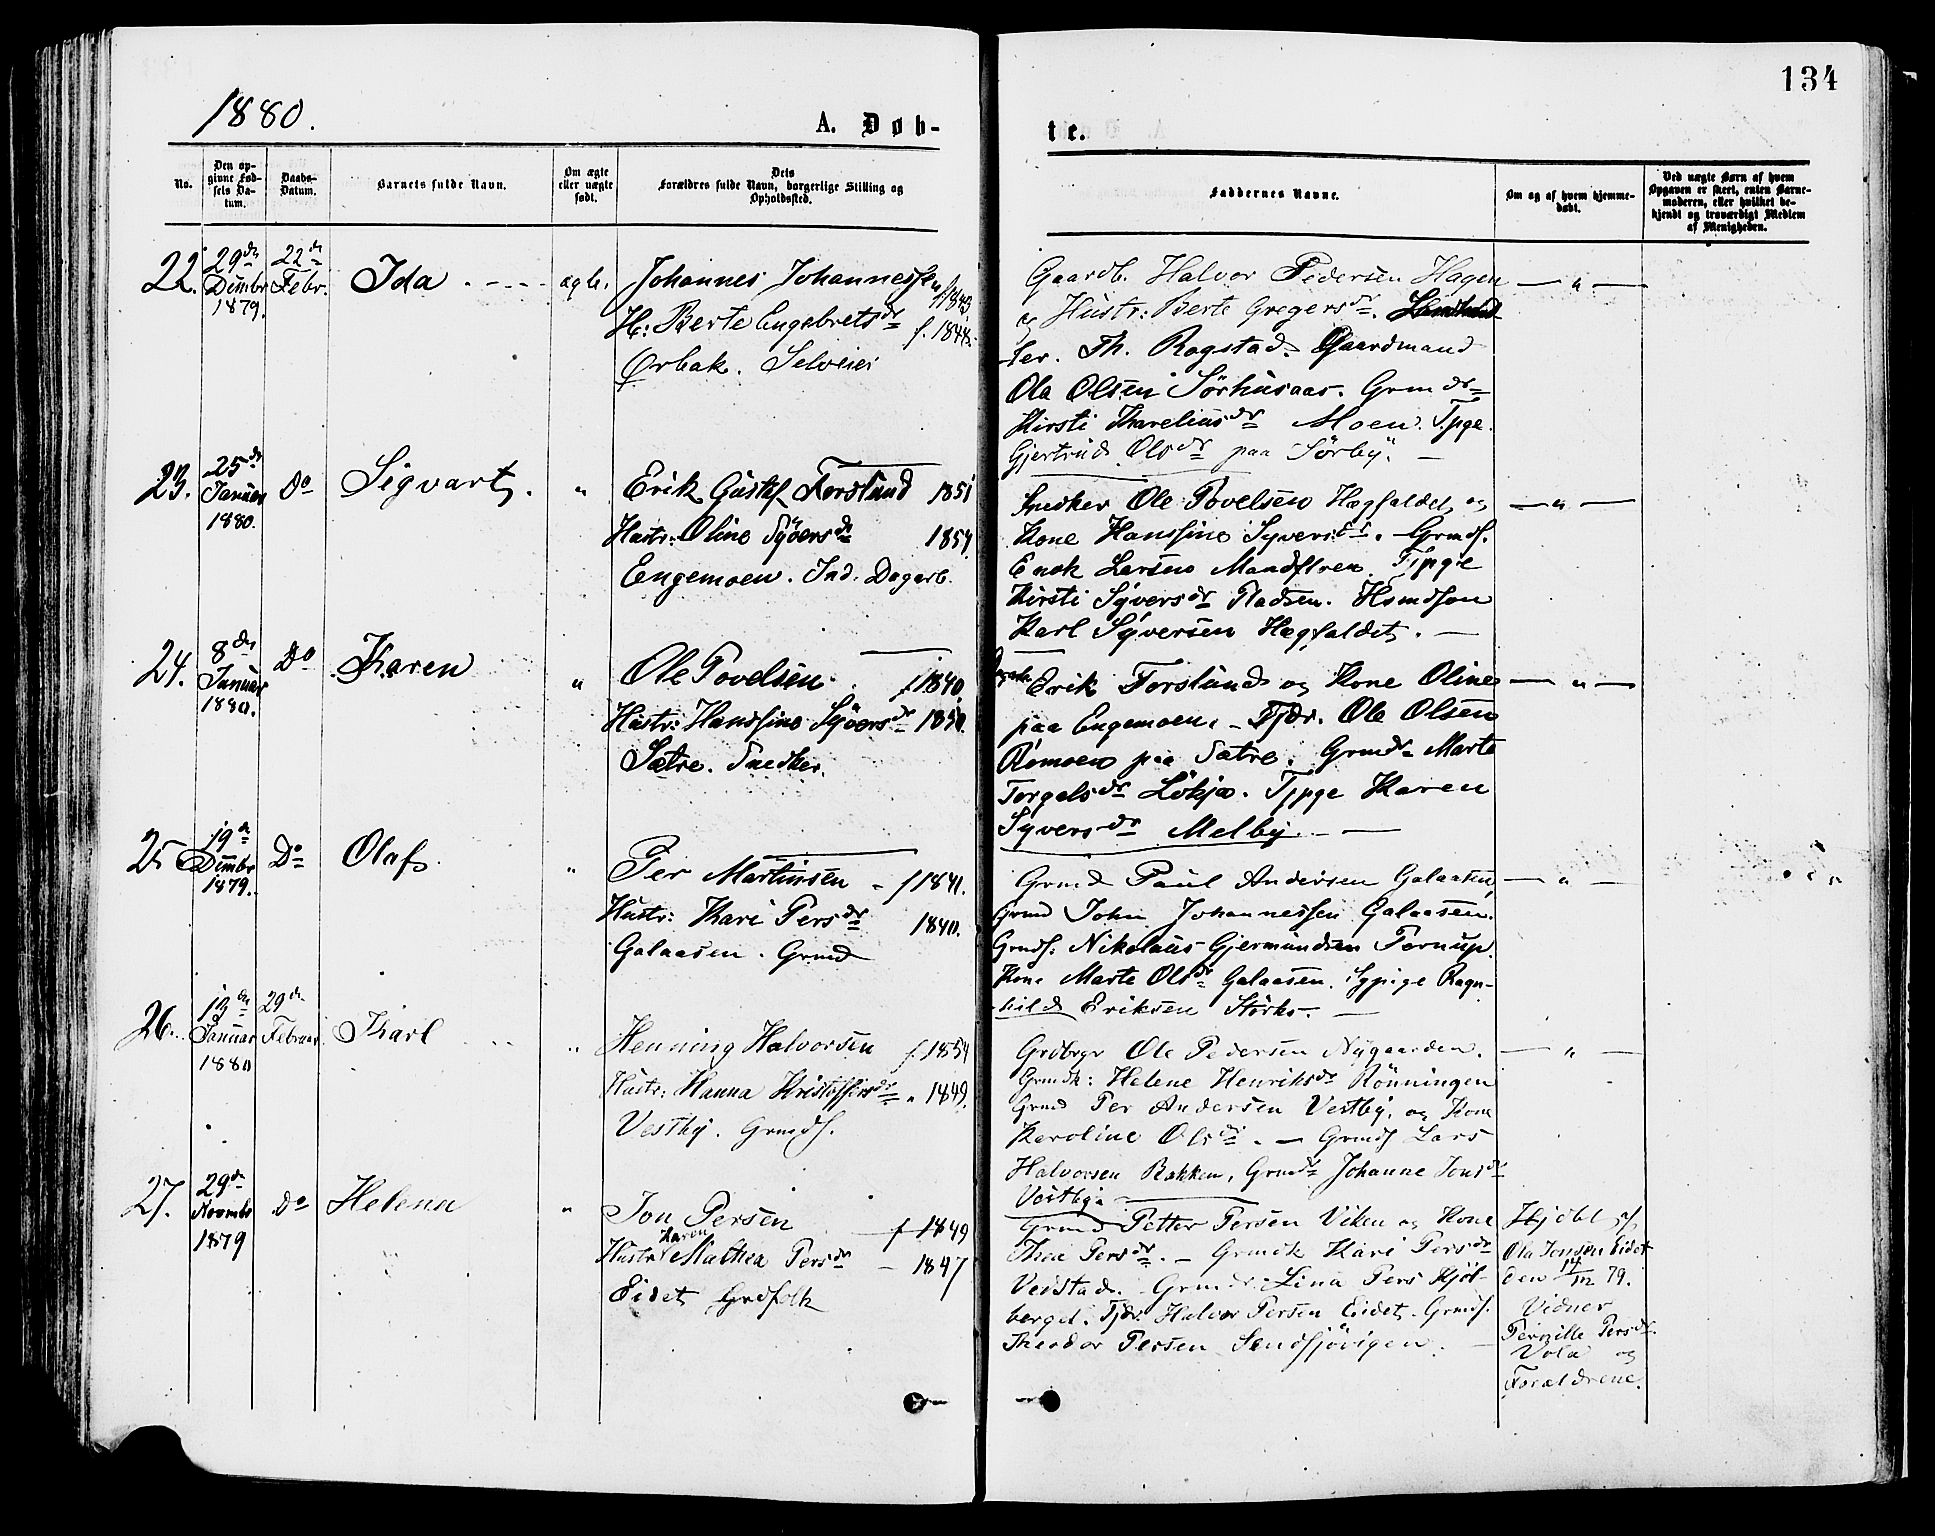 134
1880.
A. Døb-
te.
No.
Den op-
givne Fød-
sels Da-
tum.
Daabs-
Datum.
Barnets fulde Navn.
Om ægte
eller uægte
født.
Dets
Forældres fulde Navn, borgerlige Stilling og
Opholdssted.
Faddernes Navne.
Om og af hvem hjemme-
døbt.
Ved uægte Børn af hvem
Opgaven er skeet, enten Barne-
moderen, eller hvilket be-
kjendt og troværdigt Medlem
af Menigheden.
22.
29de
Dcmbr
1879.
22de
Febr.
Ida
ægte.
Johannes Johannessen f 1843.
H: Berte Engebretsdr f. 1844.
Ørbak. Selveier
Gaardb. Halvor Pedersen Hagen
og Hustr: Berte Gregersdr.
ler. Th. Rogstad. Gaardmand
Ola Olsen Sörhusaas. Grmdr
Kirsti Kareliusdr Moen. Tpge.
Gjertrud Olsdr paa Sörby. —
— " —
23.
25de
Januar
1880.
Do
Sigvart.
"
Erik Gustaf Forslund 1851
Hustr: Oline Syversdr 1854
Engemoen. Ind. Dagarb.
Snedker Ole Povelsen Hægfaldet og
Kone Hansine Syversdr. Grmds.
Enok Larsen Tjpge
Kirsti Syversdr Pladsen.
Karl Syversen Hægfaldet. —
— " —
24.
8de
Januar
1880.
Do
Karen
"
Ole Povelsen f 1840.
Hustr: Hansine Syversdr 1850.
Sætre. Snedker.
Erik Forslund og Kone Oline
paa Engemoen. – Tjdr. Ole Olsen
Römoen paa Sætre. Grmdr Marte
Torgelsdr Lökja. Tjpge Karen
Syversdr Melby. —
— " —
25
19de
Dcmbr
1879.
Do
Olaf.
"
Per Martinsen f 1841.
Hustr: Kari Persdr 1840.
Galaasen. Grmd
Grmd Paul Andersen Galaasen,
Grmd John Johannessen Galaasen.
Grmds: Nikolaus Gjermundsen Tornup.
Kone Marte Olsdr Galaasen. Tjpige Ragn-
hild Eriksen Störks. —
— " —
26.
13de
Januar
1880
29de
Februar
Karl
"
Henning Halvorsen f. 1854
Hustr: Hanna Kristoffersdr " 1849.
Vestby. Grmds.
Grdbrgr Ole Pedersen Nygaarden.
Grmdk: Helene Henriksdr Rönningen
Grmd Per Andersen Vestby. og Kone
Karoline Olsdr. – Grmds Lars
Halvorsen Bakken, Grmdr Johanne Jonsdr
Vestby.
— " —
27.
29de
Novmbr
1879
Do
Helena
"
Jon Persen f 1849
Hustr Karen Mathea Persdr – 1847
Eidet Grdfolk
Grmd Petter Persen Viken og Kone
Thea Persdr. – Grmdk Kari Persdr
Veistad. Grmdr. Lina Pers Kjöl-
berget. Tjdr. Halvor Persen Eidet. Grmds.
Theodor Persen Sendsjövigen. —
Hjdbt af
Ola Jonsen Eidet
den 14/12 79.
Vidner
Pernille Persdr.
Vola og
Forældrene.